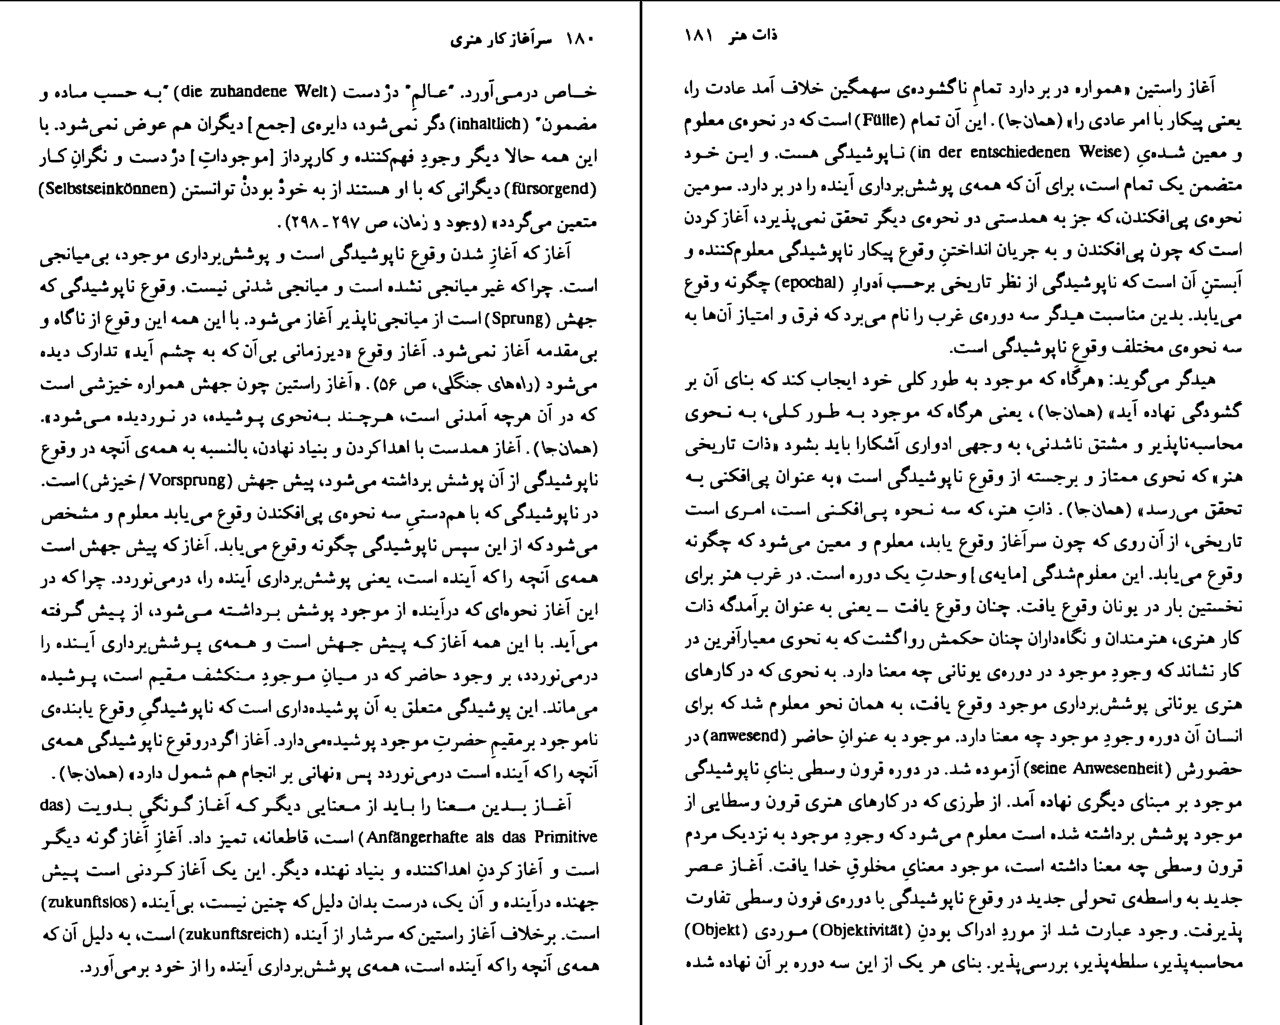 ۱۸۰ سرآغاز کار هنری
خـاص درمـی‌آورد. "عـالمِ" درْ دست (die zuhandene Welt) "بـه حسب مـاده و
مضمون" (inhaltlich) دگر نمی‌شود، دایره‌ی [جمع] دیگران هم عوض نمی‌شود. با
این همه حالا دیگر وجودِ فهم‌کننده و کارپرداز [موجوداتِ] درْ دست و نگرانِ کار
(fürsorgend) دیگرانی که با او هستند از به خودْ بودنْ توانستن (Selbstseinkönnen)
متعین می‌گردد» (وجود و زمان، ص ۲۹۷ـ۲۹۸).
آغاز که آغازِ شدن وقوع ناپوشیدگی است و پوشش‌برداری موجود، بی‌میانجی
است. چراکه غیر میانجی نشده است و میانجی شدنی نیست. وقوع ناپوشیدگی که
جهش (Sprung) است از میانجی‌ناپذیر آغاز می‌شود. با این همه این وقوع از ناگاه و
بی‌مقدمه آغاز نمی‌شود. آغاز وقوع «دیرزمانی بی‌آن که به چشم آید» تدارک دیده
می‌شود (راه‌های جنگلی، ص ۵۶). «آغاز راستین چون جهش همواره خیزشی است
که در آن هرچه آمدنی است، هـرچند بـه‌نحوی پـوشیده، در نـوردیده مـی‌شود».
(همان‌جا). آغاز همدست با اهدا کردن و بنیاد نهادن، بالنسبه به همه‌ی آنچه در وقوع
ناپوشیدگی از آن پوشش برداشته می‌شود، پیش جهش (Vorsprung / خیزش) است.
در ناپوشیدگی که با هم‌دستیِ سه نحوه‌ی پی‌افکندن وقوع می‌یابد معلوم و مشخص
می‌شود که از این سپس ناپوشیدگی چگونه وقوع می‌یابد. آغاز که پیش جهش است
همه‌ی آنچه را که آینده است، یعنی پوشش‌برداری آینده را، درمی‌نوردد. چرا که در
این آغاز نحوه‌ای که درآینده از موجود پوشش بـرداشـته مـی‌شود، از پـیش گـرفته
می‌آید. با این همه آغاز کـه پـیش جـهش است و هـمه‌ی پـوشش‌برداری آیـنده را
درمی‌نوردد، بر وجود حاضر که در مـیانِ مـوجودِ مـنکشف مـقیم است، پـوشیده
می‌ماند. این پوشیدگی متعلق به آن پوشیده‌داری است که ناپوشیدگیِ وقوع یابنده‌ی
ناموجود بر مقیمِ حضرتِ موجود پوشیده می‌دارد. آغاز اگر در وقوع ناپوشیدگی همه‌ی
آنچه را که آینده است درمی‌نوردد پس «نهانی بر انجام هم شمول دارد» (همان‌جا).
آغـاز بـدین مـعنا را بـاید از مـعنایی دیگـر کـه آغـاز گـونگیِ بـدویت (das
Anfängerhafte als das Primitive) است، قاطعانه، تمیز داد. آغازِ آغاز گونه دیگـر
است و آغاز کردنِ اهداکننده و بنیاد نهنده دیگر. این یک آغاز کردنی است پـیش
جهنده درآینده و آن یک، درست بدان دلیل که چنین نیست، بی‌آینده (zukunftslos)
است. برخلاف آغاز راستین که سرشار از آینده (zukunftsreich) است، به دلیل آن که
همه‌ی آنچه را که آینده است، همه‌ی پوشش‌برداری آینده را از خود برمی‌آورد.
ذات هنر ۱۸۱
آغاز راستین «همواره در بر دارد تمامِ ناگشوده‌ی سهمگین خلاف آمد عادت را،
یعنی پیکار با امر عادی را» (همان‌جا). این آن تمام (Fülle) است که در نحوه‌ی معلوم
و معین شـده‌یِ (in der entschiedenen Weise) نـاپوشیدگی هست. و ایـن خـود
متضمن یک تمام است، برای آن که همه‌ی پوشش‌برداری آینده را در بر دارد. سومین
نحوه‌ی پی‌افکندن، که جز به همدستی دو نحوه‌ی دیگر تحقق نمی‌پذیرد، آغاز کردن
است که چون پی‌افکندن و به جریان انداختنِ وقوع پیکار ناپوشیدگی معلوم‌کننده و
آبستنِ آن است که ناپوشیدگی از نظر تاریخی برحسب ادوارِ (epochal) چگونه وقوع
می‌یابد. بدین مناسبت هیدگر سه دوره‌ی غرب را نام می‌برد که فرق و امتیاز آن‌ها به
سه نحوه‌ی مختلف وقوع ناپوشیدگی است.
هیدگر می‌گوید: «هرگاه که موجود به طور کلی خود ایجاب کند که بنای آن بر
گشودگی نهاده آید» (همان‌جا)، یعنی هرگاه که موجود بـه طـور کـلی، بـه نـحوی
محاسبه‌ناپذیر و مشتق ناشدنی، به وجهی ادواری آشکارا باید بشود «ذات تاریخی
هنر» که نحوی ممتاز و برجسته از وقوع ناپوشیدگی است «به عنوان پی‌افکنی بـه
تحقق می‌رسد» (همان‌جا). ذاتِ هنر، که سه نـحوه پـی‌افکـنی است، امـری است
تاریخی، از آن روی که چون سرآغاز وقوع یابد، معلوم و معین می‌شود که چگونه
وقوع می‌یابد. این معلوم‌شدگی [مایه‌ی] وحدتِ یک دوره است. در غرب هنر برای
نخستین بار در یونان وقوع یافت. چنان وقوع یافت ــ یعنی به عنوان برآمدگه ذات
کار هنری، هنرمندان و نگاه‌داران چنان حکمش روا گشت که به نحوی معیارآفرین در
کار نشاند که وجودِ موجود در دوره‌ی یونانی چه معنا دارد. به نحوی که در کارهای
هنری یونانی پوشش‌برداری موجود وقوع یافت، به همان نحو معلوم شد که برای
انسان آن دوره وجودِ موجود چه معنا دارد. موجود به عنوانِ حاضر (anwesend) در
حضورش (seine Anwesenheit) آزموده شد. در دوره قرون وسطی بنایِ ناپوشیدگی
موجود بر مبنای دیگری نهاده آمد. از طرزی که در کارهای هنری قرون وسطایی از
موجود پوشش برداشته شده است معلوم می‌شود که وجودِ موجود به نزدیک مردم
قرون وسطی چه معنا داشته است، موجود معنایِ مخلوقِ خدا یافت. آغـاز عـصر
جدید به واسطه‌ی تحولی جدید در وقوع ناپوشیدگی با دوره‌ی قرون وسطی تفاوت
پذیرفت. وجود عبارت شد از موردِ ادراک بودنِ (Objektivität) مـوردی (Objekt)
محاسبه‌پذیر، سلطه‌پذیر، بررسی‌پذیر. بنای هر یک از این سه دوره بر آن نهاده شده